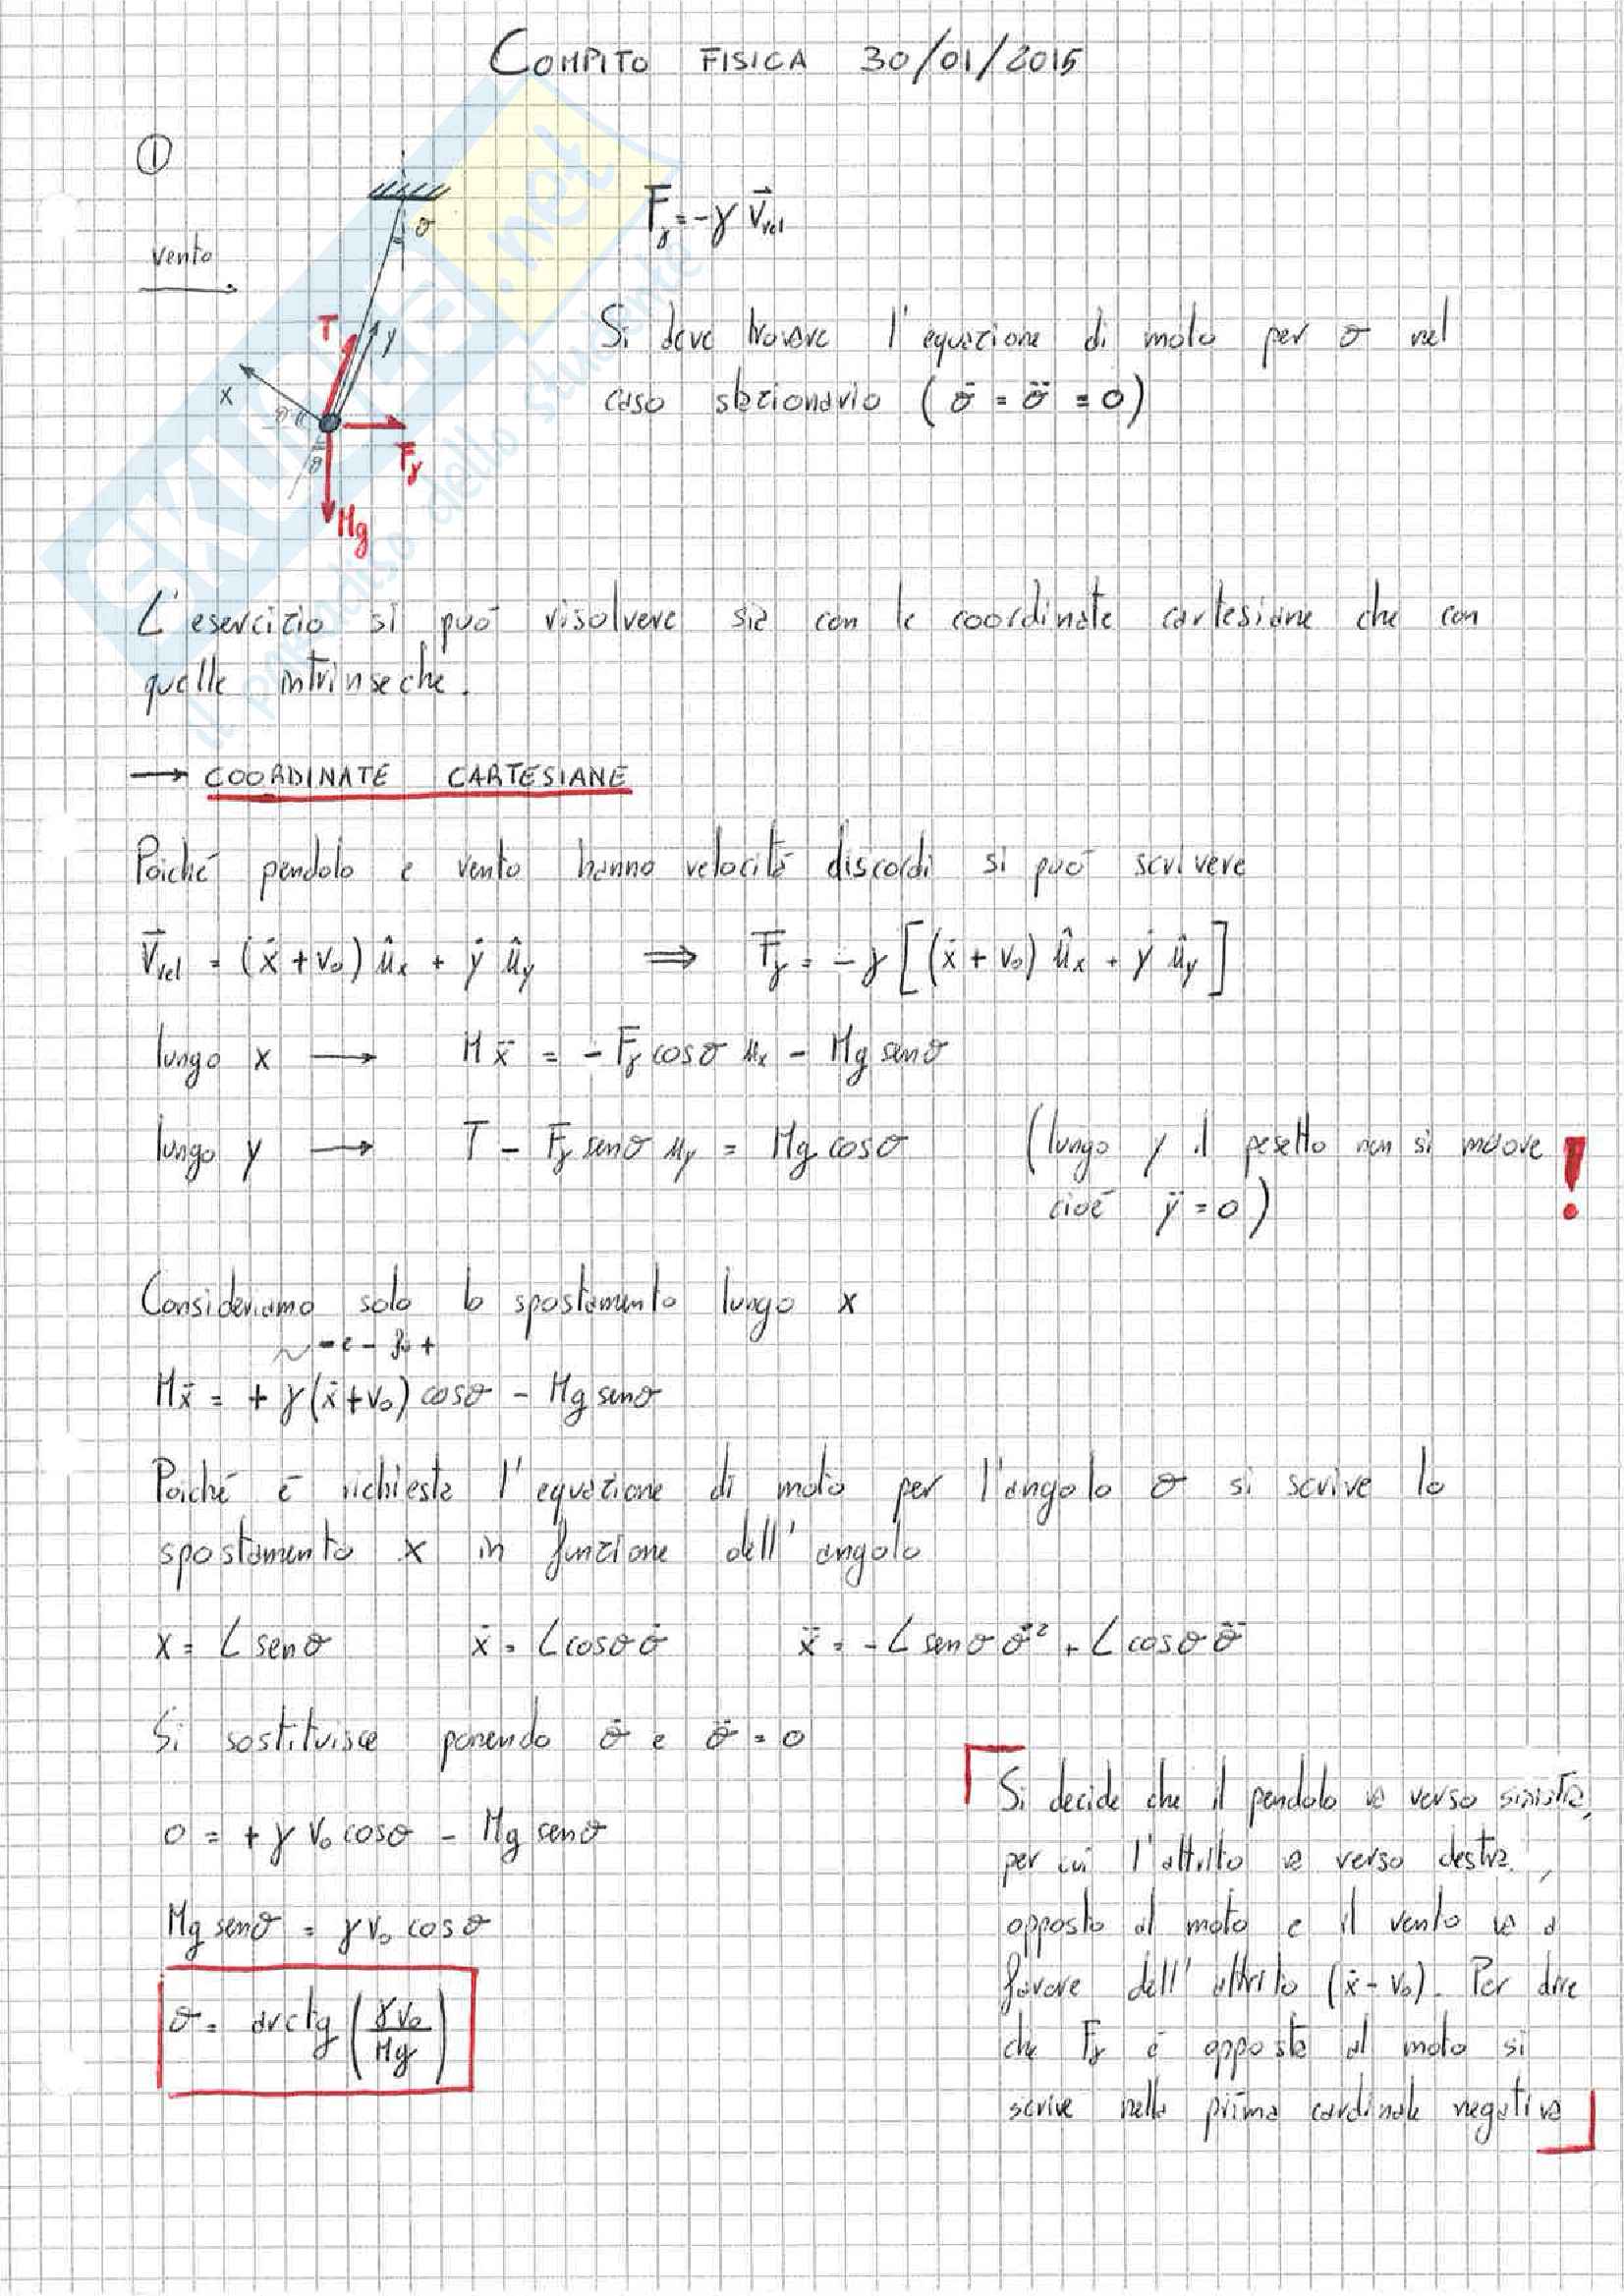 COMPITO FISICA 30/01/2015
①
vento
θ
T
y
x
θ
θ
Fγ
Mg
Fγ = -γ v⃗rel
Si deve trovare l'equazione di moto per θ nel
caso stazionario (θ̇ = θ̈ = 0)
L'esercizio si può risolvere sia con le coordinate cartesiane che con
quelle intrinseche.
→ COORDINATE CARTESIANE
Poiché pendolo e vento hanno velocità discordi si può scrivere
V⃗rel = (ẋ + v₀) ûx + ẏ ûy ⇒ F⃗γ = -γ [(ẋ + v₀) ûx + ẏ ûy]
lungo x → Mẍ = - Fγ cosθ ux - Mg senθ
lungo y → T - Fγ senθ uy = Mg cosθ (lungo y il pesetto non si muove !
cioè ÿ = 0)
Consideriamo solo lo spostamento lungo x
Mẍ = + γ(ẋ + v₀) cosθ - Mg senθ
Poiché è richiesta l'equazione di moto per l'angolo θ si scrive lo
spostamento x in funzione dell'angolo
x = L senθ ẋ = L cosθ θ̇ ẍ = -L senθ θ̇² + L cosθ θ̈
Si sostituisce ponendo θ̇ e θ̈ = 0
0 = + γ v₀ cosθ - Mg senθ
Mg senθ = γ v₀ cosθ
θ = arctg (γ v₀ / Mg)
Si decide che il pendolo va verso sinistra,
per cui l'attrito va verso destra,
opposto al moto e il vento va a
favore dell'attrito (ẋ - v₀). Per dire
che Fγ è opposta al moto si
scrive nella prima cardinale negativa
SKUOLA.net
il paradiso dello studente